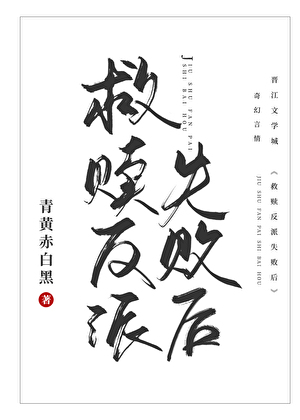 救赎反派
失败后
JIU SHU FAN PAI
SHI BAI HOU
晋江文学城
奇幻言情
《救赎反派失败后》
JIU SHU FAN PAI SHI BAI HOU
青黄赤白黑
著